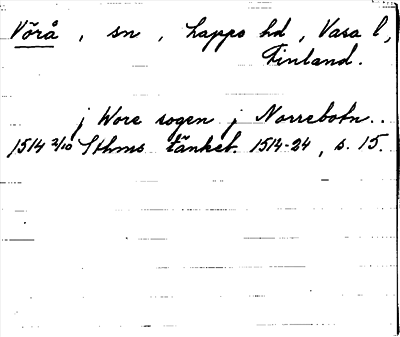 Vörå, sn, Lappo hd, Vasa l,
Finland.
j Wore sogen j Norrebotn..
1514 2/10 Sthms tänkeb. 1514-24, s. 15.